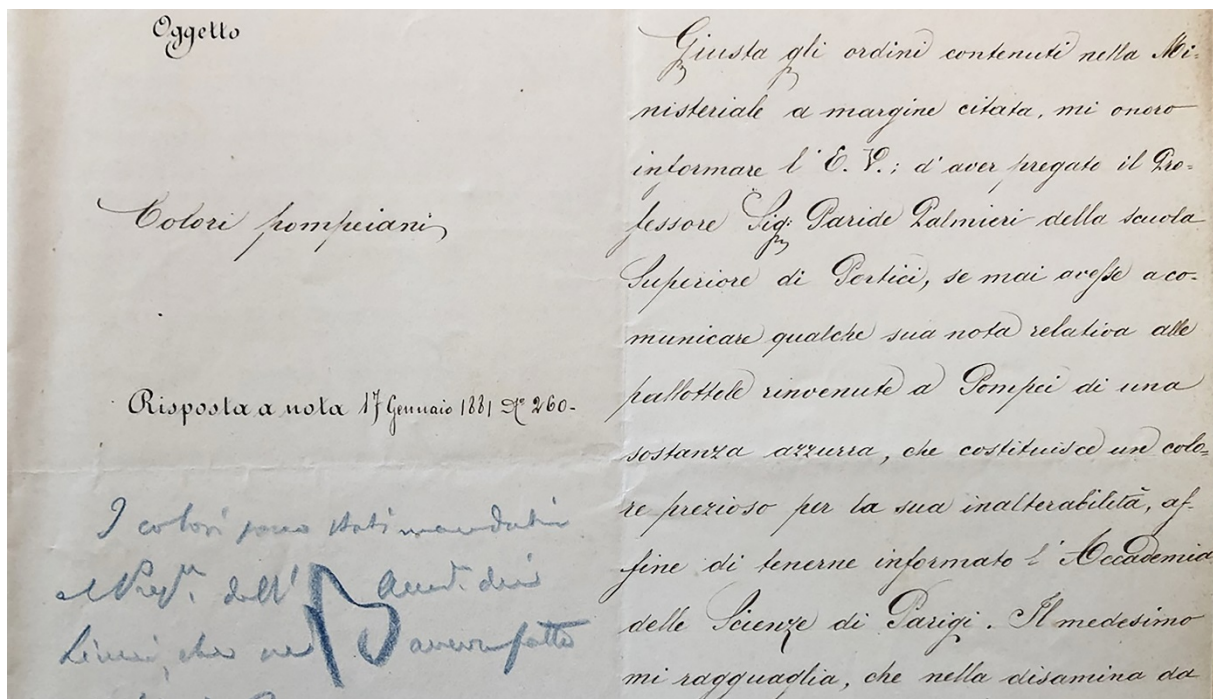 Oggetto
Colori pompeiani
Risposta a nota 17 Gennaio 1881 N° 260-
I colori sono stati mandati
al dell'
Lincei, che ne aveva fatto
Giusta gli ordini contenuti nella Mi-
nisteriale a margine citata, mi onoro
informare l'E. V.; d'aver pregato il Pro-
fessore Sig: Paride Palmieri della scuola
Superiore di Portici, se mai avesse a co-
municare qualche sua nota relativa alle
pallottole rinvenute a Pompei di una
sostanza azzurra, che costituisce un colo-
re prezioso per la sua inalterabilità, af-
fine di tenerne informato l'Accademia
delle Scienze di Parigi. Il medesimo
mi ragguaglia, che nella disamina da